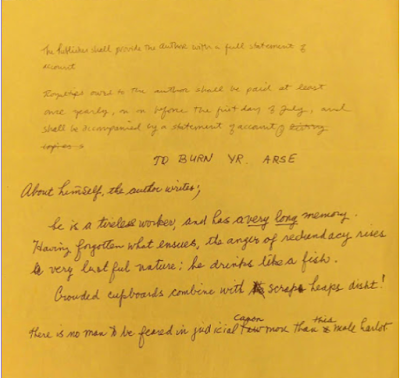 The Publisher shall provide the author with a full statement of
account
more to the author shall be paid at least
once yearly, on or before the first day of July, and
shall be accompanied by a statement of account of
copies
TO BURN YR. ARSE
About himself, the author writes;
he is a tireless worker, and has a very long memory.
Having forgotten what ensues, the anger of redundacy rises
very lustful nature: he drinks like a fish.
Crowded cupboards combine with scrap heaps disht!
canon this
there is no man to be feared in judicial law more than male harlot